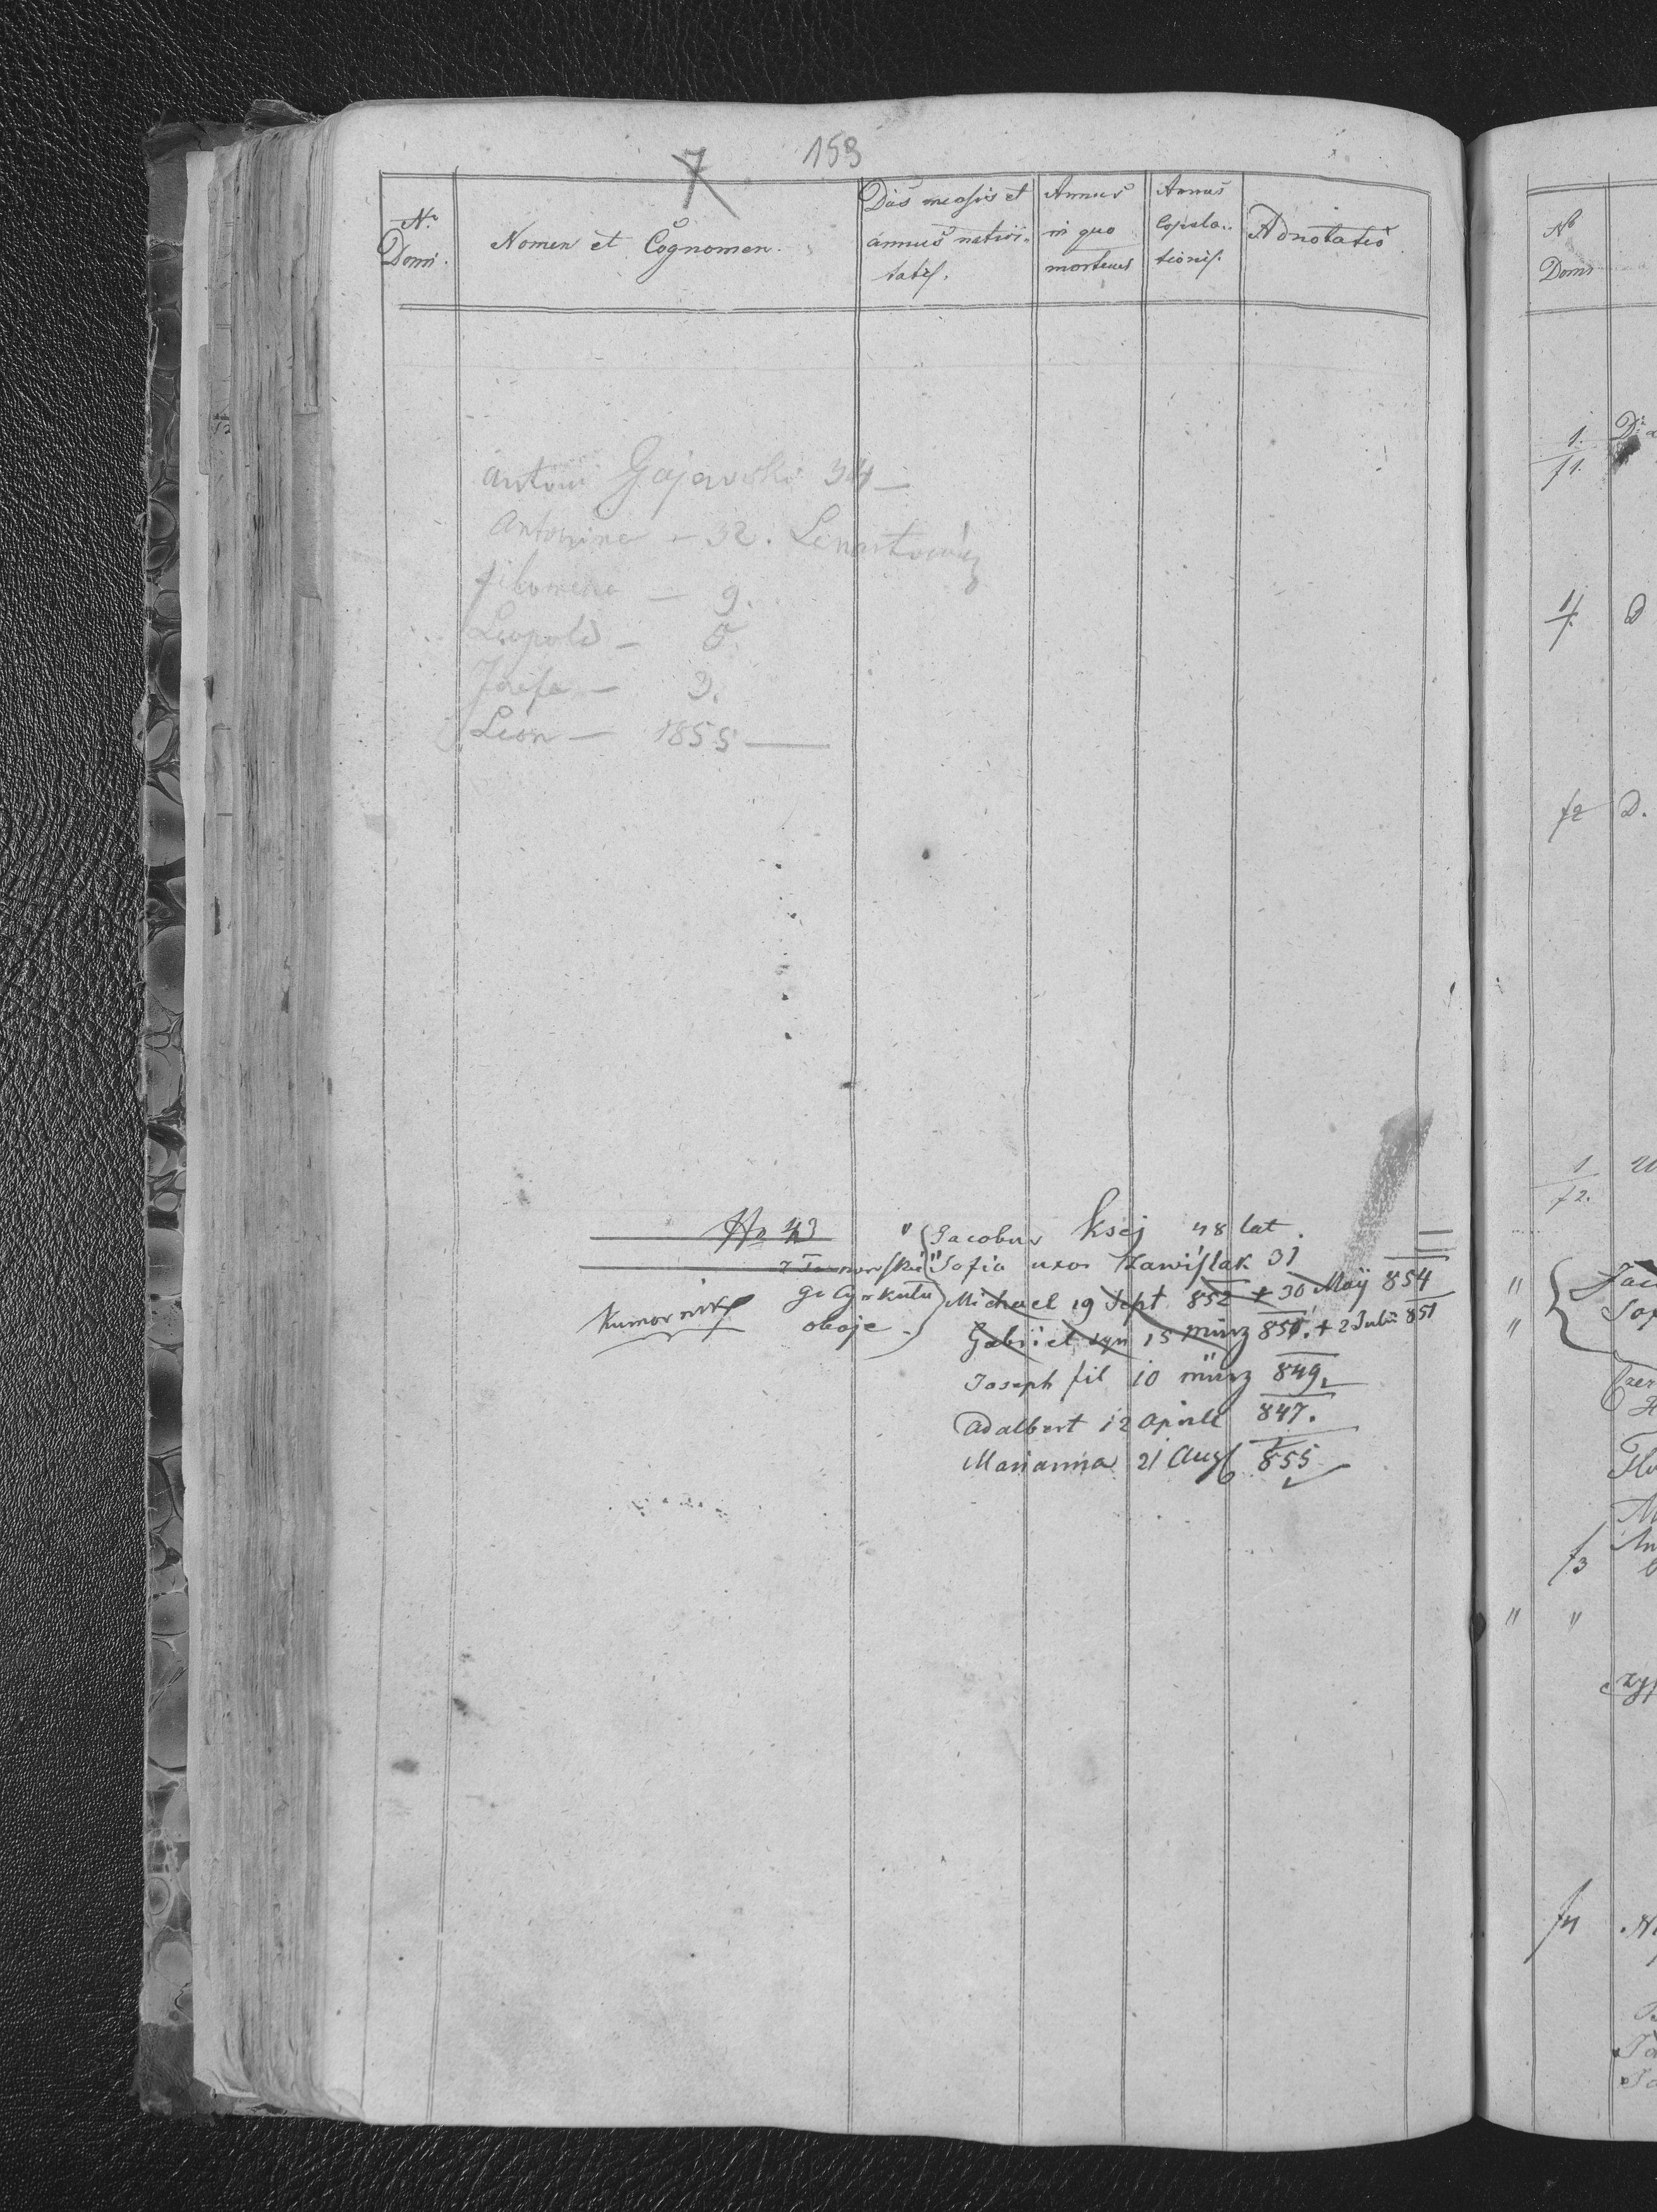 7 153
No Domi.
Nomen et Cognomen.
Dies mensis et annus nativi-tatis.
Annus in quo mortuus
Annus Copula-tionis.
Adnotatio
Antoni Gajewski 34 —
Antonina — 32. Lenartowicz
Filomena — 9.
Leopold — 5.
Josefa — 3.
Leon — 1855 —
No 43 " Jacobus Ksej 48 lat.
" Sofia uxor Zawiślak 31
Michael 19 Sept 852 + 30 Maij 854
Kumornik oboje
Gabriel syn 15 März 851. + 2 Julii 851
Joseph fil 10 märz 849.
Adalbert 12 Aprill 847.
Marianna 21 Aug 855
No Domi
1.
f1.
D.
f2 D.
1
f2.
"
"
f3
" "
f4